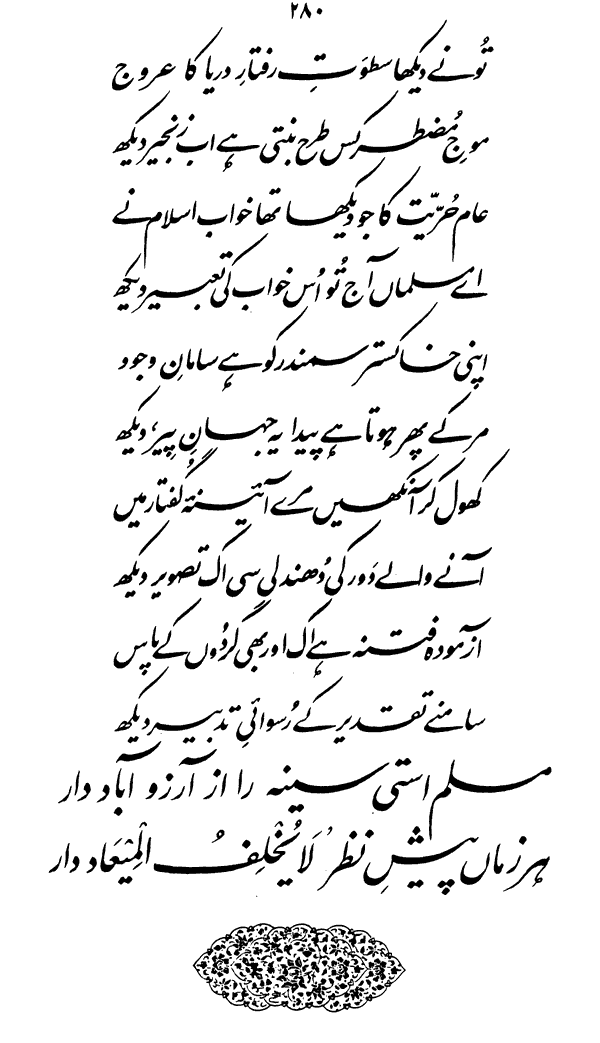 ۲۸۰
تُو نے دیکھا سطوَتِ رفتارِ دریا کا عروج
موجِ مُضطر کس طرح بنتی ہے اب زنجیر دیکھ
عام حُرّیّت کا جو دیکھا تھا خواب اسلام نے
اے مسلماں آج تُو اُس خواب کی تعبیر دیکھ
اپنی خاکستر سمندر کو ہے سامانِ وجود
مر کے پھر ہوتا ہے پیدا یہ جہانِ پِیر، دیکھ
کھول کر آنکھیں مرے آئینۂ گُفتار میں
آنے والے دَور کی دُھندلی سی اک تصویر دیکھ
آزمودہ فتنہ ہے اک اور بھی گردُوں کے پاس
سامنے تقدیر کے رُسوائیِ تدبیر دیکھ
مسلم استی سینہ را از آرزو آباد دار
ہر زماں پیشِ نظر ’لَا یُخْلِفُ الْمِیْعَاد‘ دار